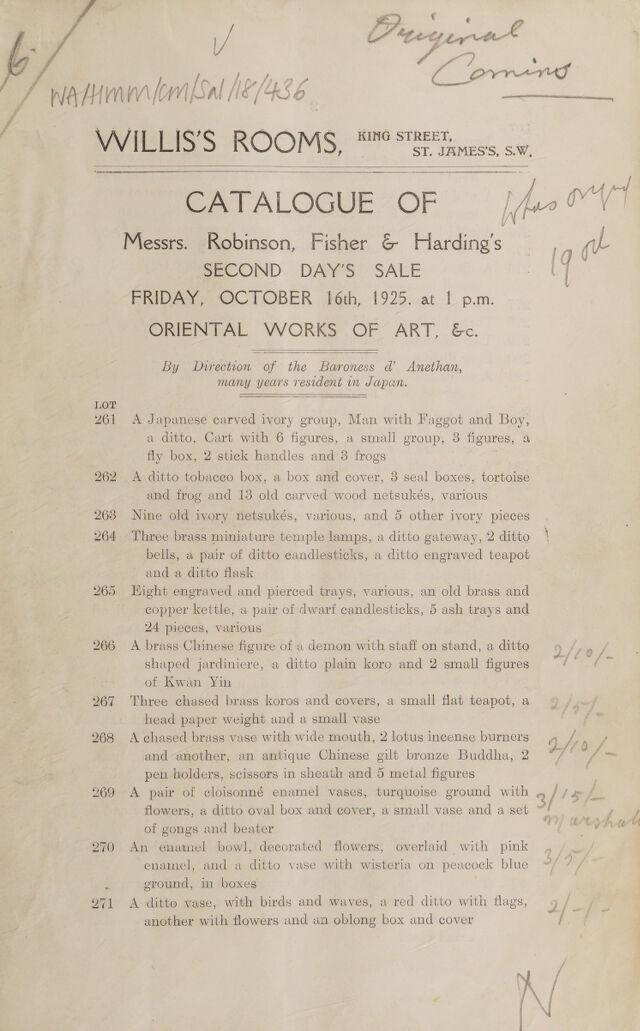 6
Original
Comino
WA/HMM/CM/Sal/18/436
WILLIS'S ROOMS, KING STREET,
ST. JAMES'S, S.W.
CATALOGUE OF
Messrs. Robinson, Fisher & Harding's
SECOND DAY'S SALE
FRIDAY, OCTOBER 16th, 1925. at 1 p.m.
ORIENTAL WORKS OF ART, &c.
19
By Direction of the Baroness d' Anethan,
many years resident in Japan.
LOT
261 A Japanese carved ivory group, Man with Faggot and Boy,
a ditto, Cart with 6 figures, a small group, 3 figures, a
fly box, 2 stick handles and 3 frogs
262 A ditto tobacco box, a box and cover, 3 seal boxes, tortoise
and frog and 13 old carved wood netsukés, various
263 Nine old ivory netsukés, various, and 5 other ivory pieces
264 Three brass miniature temple lamps, a ditto gateway, 2 ditto
bells, a pair of ditto candlesticks, a ditto engraved teapot
and a ditto flask
265 Eight engraved and pierced trays, various, an old brass and
copper kettle, a pair of dwarf candlesticks, 5 ash trays and
24 pieces, various
266 A brass Chinese figure of a demon with staff on stand, a ditto
shaped jardiniere, a ditto plain koro and 2 small figures
of Kwan Yin
2/10/-
267 Three chased brass koros and covers, a small flat teapot, a
head paper weight and a small vase
2/5/-
268 A chased brass vase with wide mouth, 2 lotus incense burners
and another, an antique Chinese gilt bronze Buddha, 2
pen holders, scissors in sheath and 5 metal figures
2/10/-
269 A pair of cloisonné enamel vases, turquoise ground with
flowers, a ditto oval box and cover, a small vase and a set
of gongs and beater
3/15/-
Marshal
270 An enamel bowl, decorated flowers, overlaid with pink
enamel, and a ditto vase with wisteria on peacock blue
ground, in boxes
3/5/-
271 A ditto vase, with birds and waves, a red ditto with flags,
another with flowers and an oblong box and cover
2/-/-
N